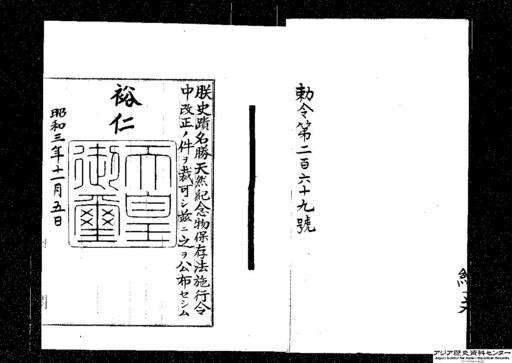 勅令第二百六十九號
朕史蹟名勝天然紀念物保存法施行令
中改正ノ件ヲ裁可シ玆ニ之ヲ公布セシム
裕仁
天皇
御璽
昭和三年十一月五日
アジア歴史資料センター
Japan Center for Asian Historical Records